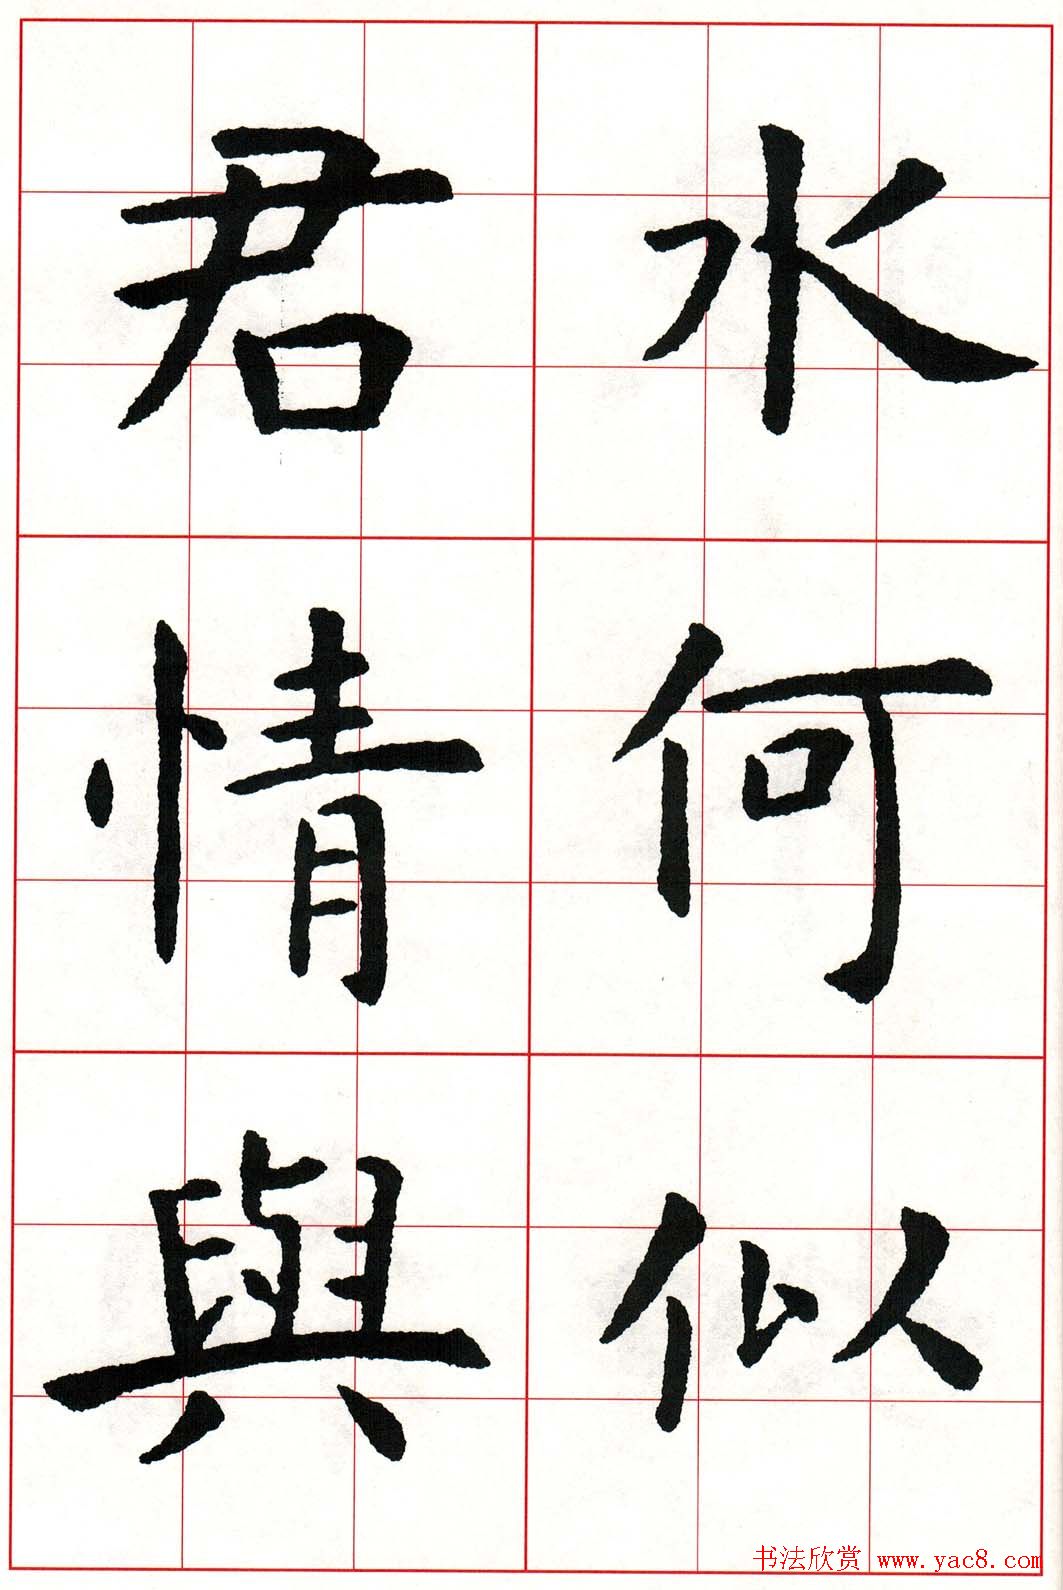 水何似
君情與
书法欣赏 www.yac8.com